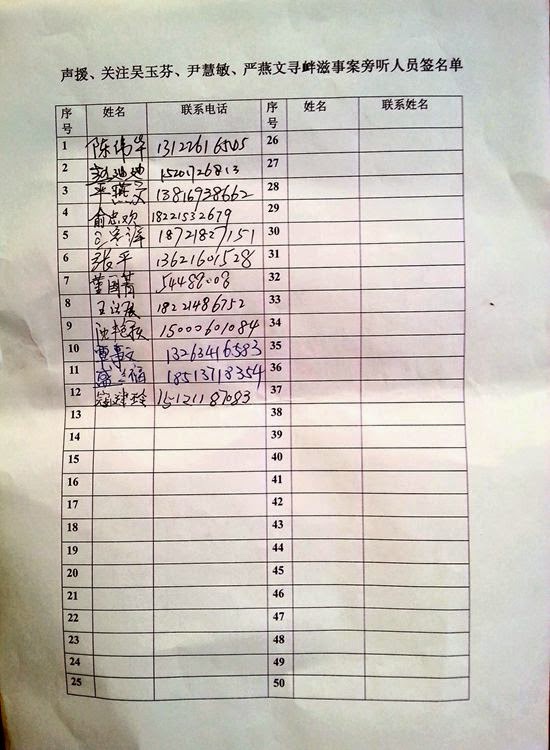 声援、关注吴玉芬、尹慧敏、严燕文寻衅滋事案旁听人员签名单
序号 姓名 联系电话 序号 姓名 联系姓名
1 陈伟华 13122616505 26
2 15201726813 27
3 13816928662 28
4 俞忠欢 18221532679 29
5 18721827151 30
6 张平 13621601528 31
7 董国菁 54489008 32
8 18221486752 33
9 沈艳秋 15000601084 34
10 13263416583 35
11 盛兰福 18513718354 36
12 15121187083 37
13 38
14 39
15 40
16 41
17 42
18 43
19 44
20 45
21 46
22 47
23 48
24 49
25 50